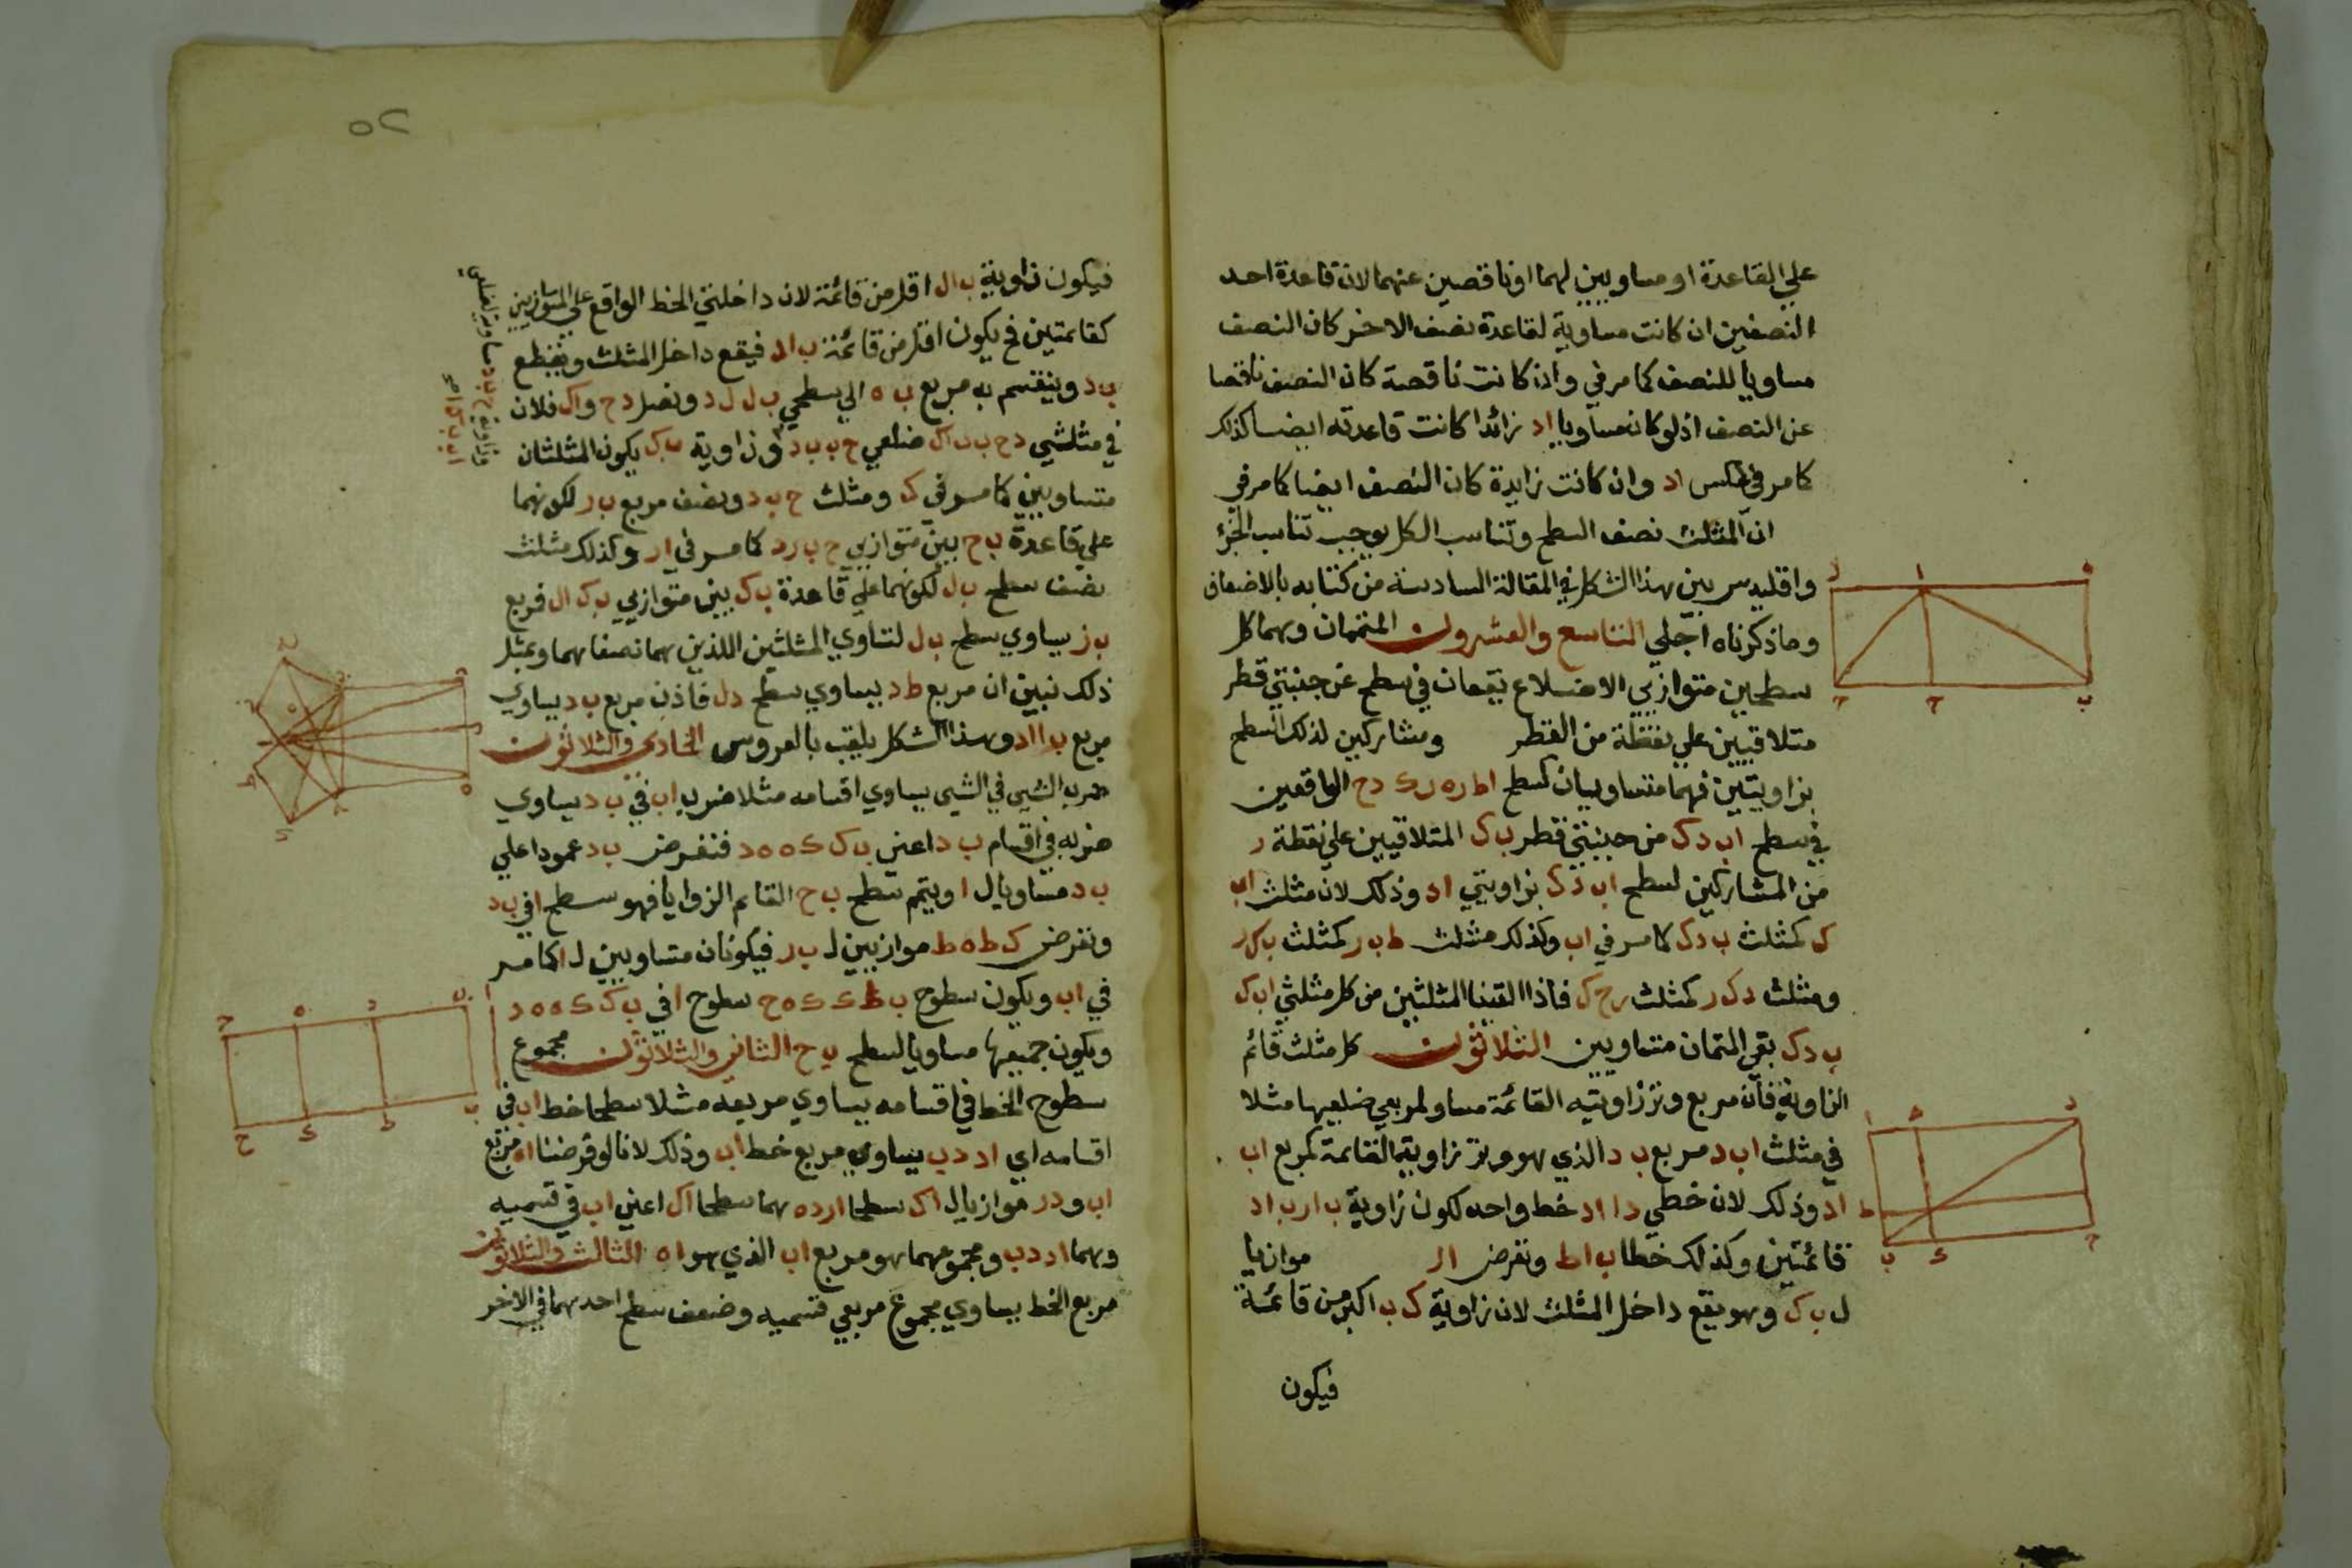 علي القاعدة او مساويين لهما او ناقصين عنهما لان قاعدة احد
النصفين ان كانت مساوية لقاعدة نصف الاخر كان النصف
مساويا للنصف كما مر في وان كانت ناقصة كان النصف ناقصا
عن النصف اذ لو كان مساويا او زائدا كانت قاعدته ايضا كذلك
كما مر في عكس اد وان كانت زايدة كان النصف ايضا كما مر في
ان المثلث نصف السطح وتناسب الكل يوجب تناسب الجزء
واقليدس بين هذا الشكل في المقالة السادسة من كتابه بالاضعاف
وما ذكرناه اجلي التاسع والعشرون المتممان وهما كل
سطحين متوازيي الاضلاع يقعان في سطح عن جنبتي قطر
متلاقيين علي نقطة من القطر ومشاركين لذلك السطح
بزاويتين فهما متساويان كسطح اط ره رک دح الواقعين
في سطح اب دک من جنبتي قطر ب ک المتلاقيين علي نقطة ر
من المشاركين لسطح اب دک بزاويتي اد وذلك لان مثلث اب
ک كمثلث ب دک كما مر في اب وكذلك مثلث ط ب ر كمثلث ب ک ر
ومثلث دک ر كمثلث رح ک فاذا القينا المثلثين من كل مثلثي اب ک
ب دک بقي المتمان متساويين الثلاثون كل مثلث قائم
الزاوية فان مربع وتر زاويته القائمة مساو لمربعي ضلعيها مثلا
في مثلث اب د مربع ب د الذي هو وتر زاوية القائمة كمربع اب
اد وذلك لان خطي دا اد خط واحد لكون زاوية ب ار ب اد
قائمتين وكذلك خطا ب اط ونفرض ال موازيا
ل ب ک وهو يقع داخل المثلث لان زاوية ک ب اكبر من قائمة
فيكون
٢٥
فيكون زاوية ب ال اقل من قائمة لان داخلتي الخط الواقع علي المتوازيين
كقائمتين فح يكون اقل من قائمة ب اد فيقع داخل المثلث ويقطع
ب د وينقسم به مربع ب ه الي سطحي ب ل ل د ونصل دح واک فلان
في مثلثي دح ب ب اک ضلعي ح ب ب د و زاوية ب ک يكون المثلثان
متساويين كما مر في ک ومثلث ح ب د ونصف مربع ب ر لكونهما
علي قاعدة ب ح بين متوازيي ح ب ر د كما مر في ار وكذلك مثلث
نصف سطح ب ل لكونهما علي قاعدة ب ک بين متوازيي ب ک ال فربع
ب ز يساوي سطح ب ل لتساوي المثلثين اللذين هما نصفاهما وبمثل
ذلك نبين ان مربع ط د يساوي سطح دل فاذن مربع ب د يساوي
مربع ب ا اد وهذا الشكل يلقب بالعروس الحادي والثلاثون
ضرب الشي في الشي يساوي اقسامه مثلا ضرب اب في ب د يساوي
ضربه في اقسام ب د اعني ب ک ک ه ه د فنفرض ب د عمودا علي
ب د مساويا ل ا ويتم سطح ب ح القائم الزوايا فهو سطح ا في ب د
ونفرض ک ط ه ط موازيين ل ب ر فيكونان متساويين ل ا كما مر
في اب ويكون سطوح ب ط ک ک ه ح سطوح ا في ب ک ک ه ه د
ويكون جميعها مساويا لسطح ب ح الثاني والثلاثون مجموع
سطوح الخط في اقسامه يساوي مربعه مثلا سطحا خط اب في
اقسامه اي اد دب يساوي مربع خط اب وذلك لانا لو فرضنا اه مربع
اب ود ر موازيا ل اک سطحا ار ده هما سطحا اک اعني اب في قسميه
وهما اد دب ومجموعهما هو مربع اب الذي هو اه الثالث والثلاثون
مربع الخط يساوي مجموع مربعي قسميه وضعف سطح احدهما في الاخر